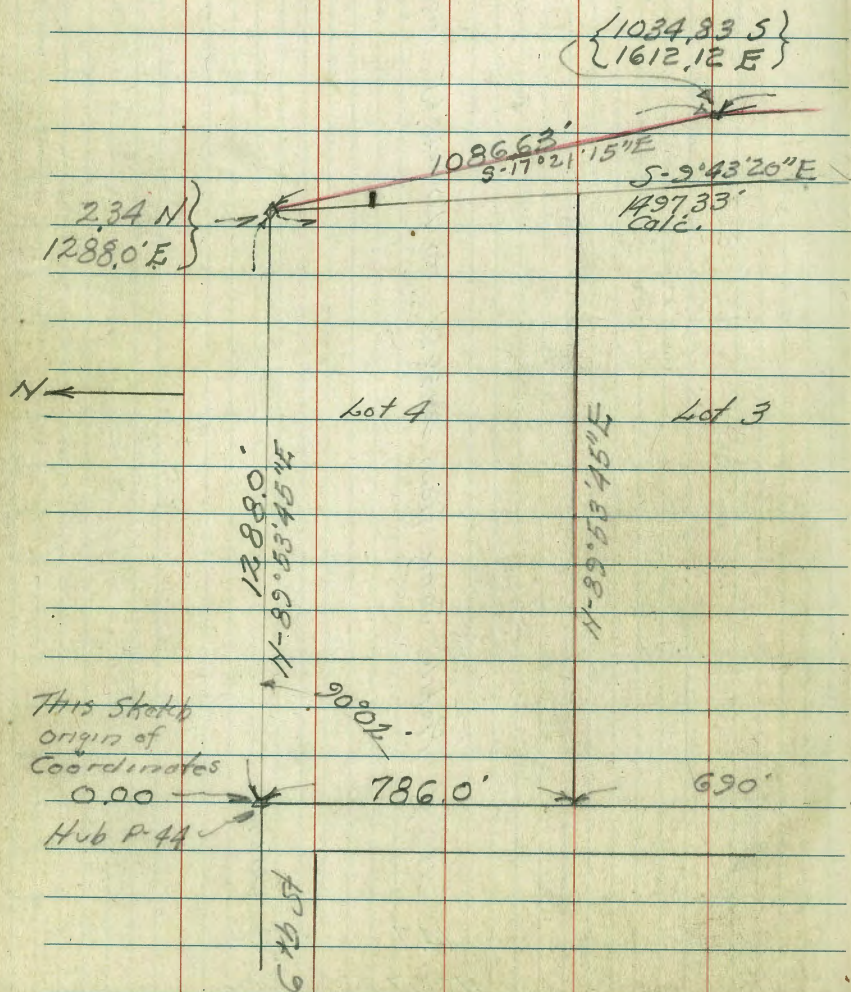 {1034.83 S}
{1612.12 E}
1086.63'
S-17°21'15"E
S-9°43'20"E
1497.33'
Calc.
2.34 N}
1288.0'E}
N
Lot 4
Lot 3
1288.0'
N-89°53'45"E
N-89°53'45"E
90°02'
This Sketch
origin of
Coordinates
0.00
786.0'
690'
Hub P-44
6th St